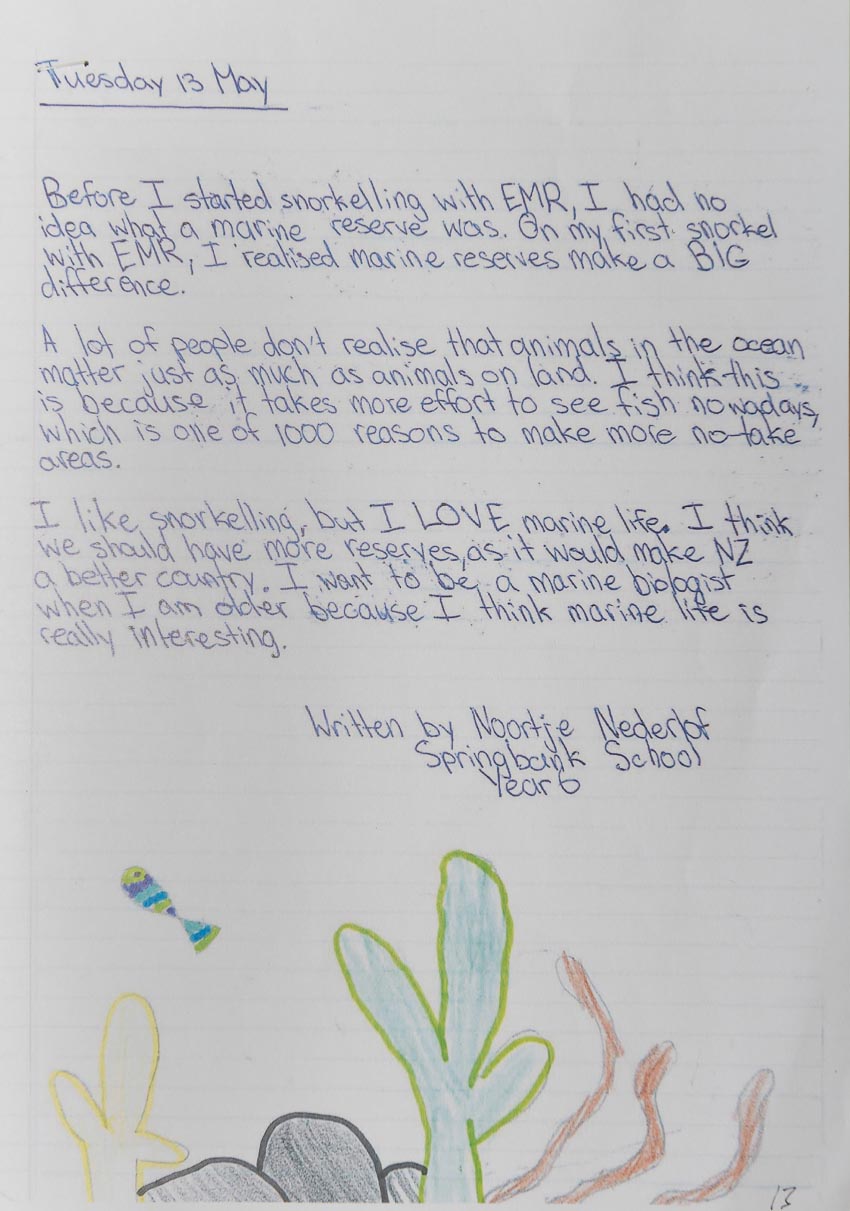 Tuesday 13 May
Before I started snorkelling with EMR, I had no
idea what a marine reserve was. On my first snorkel
with EMR, I realised marine reserves make a BIG
difference.
A lot of people don't realise that animals in the ocean
matter just as much as animals on land. I think this
is because it takes more effort to see fish nowadays,
which is one of 1000 reasons to make more no-take
areas.
I like snorkelling, but I LOVE marine life. I think
we should have more reserves, as it would make NZ
a better country. I want to be a marine biologist
when I am older because I think marine life is
really interesting.
Written by Noortje Nederlof
Springbank School
Year 6
13